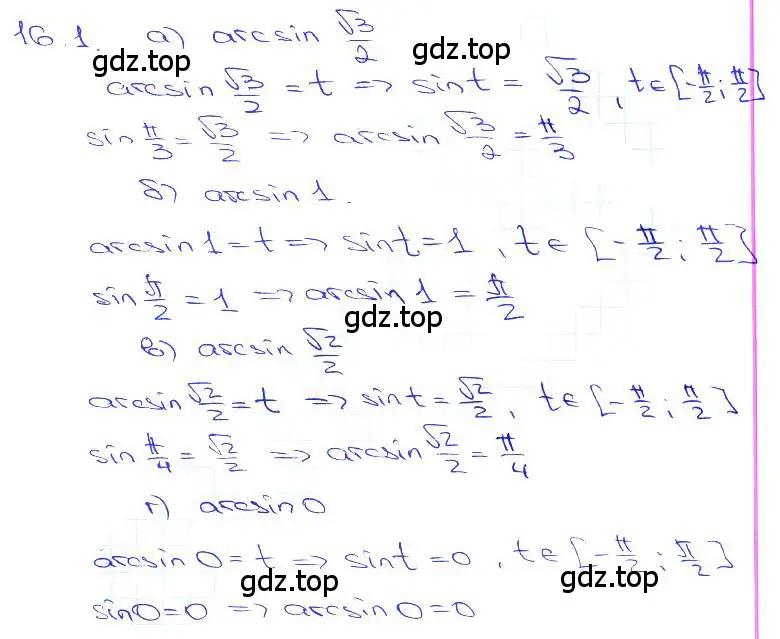 16.1. а) arcsin √3/2
gdz.top gdz.top
arcsin √3/2 = t => sint = √3/2, t∈[-π/2; π/2]
sin π/3 = √3/2 => arcsin √3/2 = π/3
б) arcsin 1.
arcsin 1 = t => sint = 1, t∈[-π/2; π/2]
sin π/2 = 1 => arcsin 1 = π/2
gdz.top
в) arcsin √2/2
arcsin √2/2 = t => sint = √2/2, t∈[-π/2; π/2]
sin π/4 = √2/2 => arcsin √2/2 = π/4
г) arcsin 0
arcsin 0 = t => sint = 0, t∈[-π/2; π/2]
gdz.top gdz.top
sin0=0 => arcsin 0 = 0